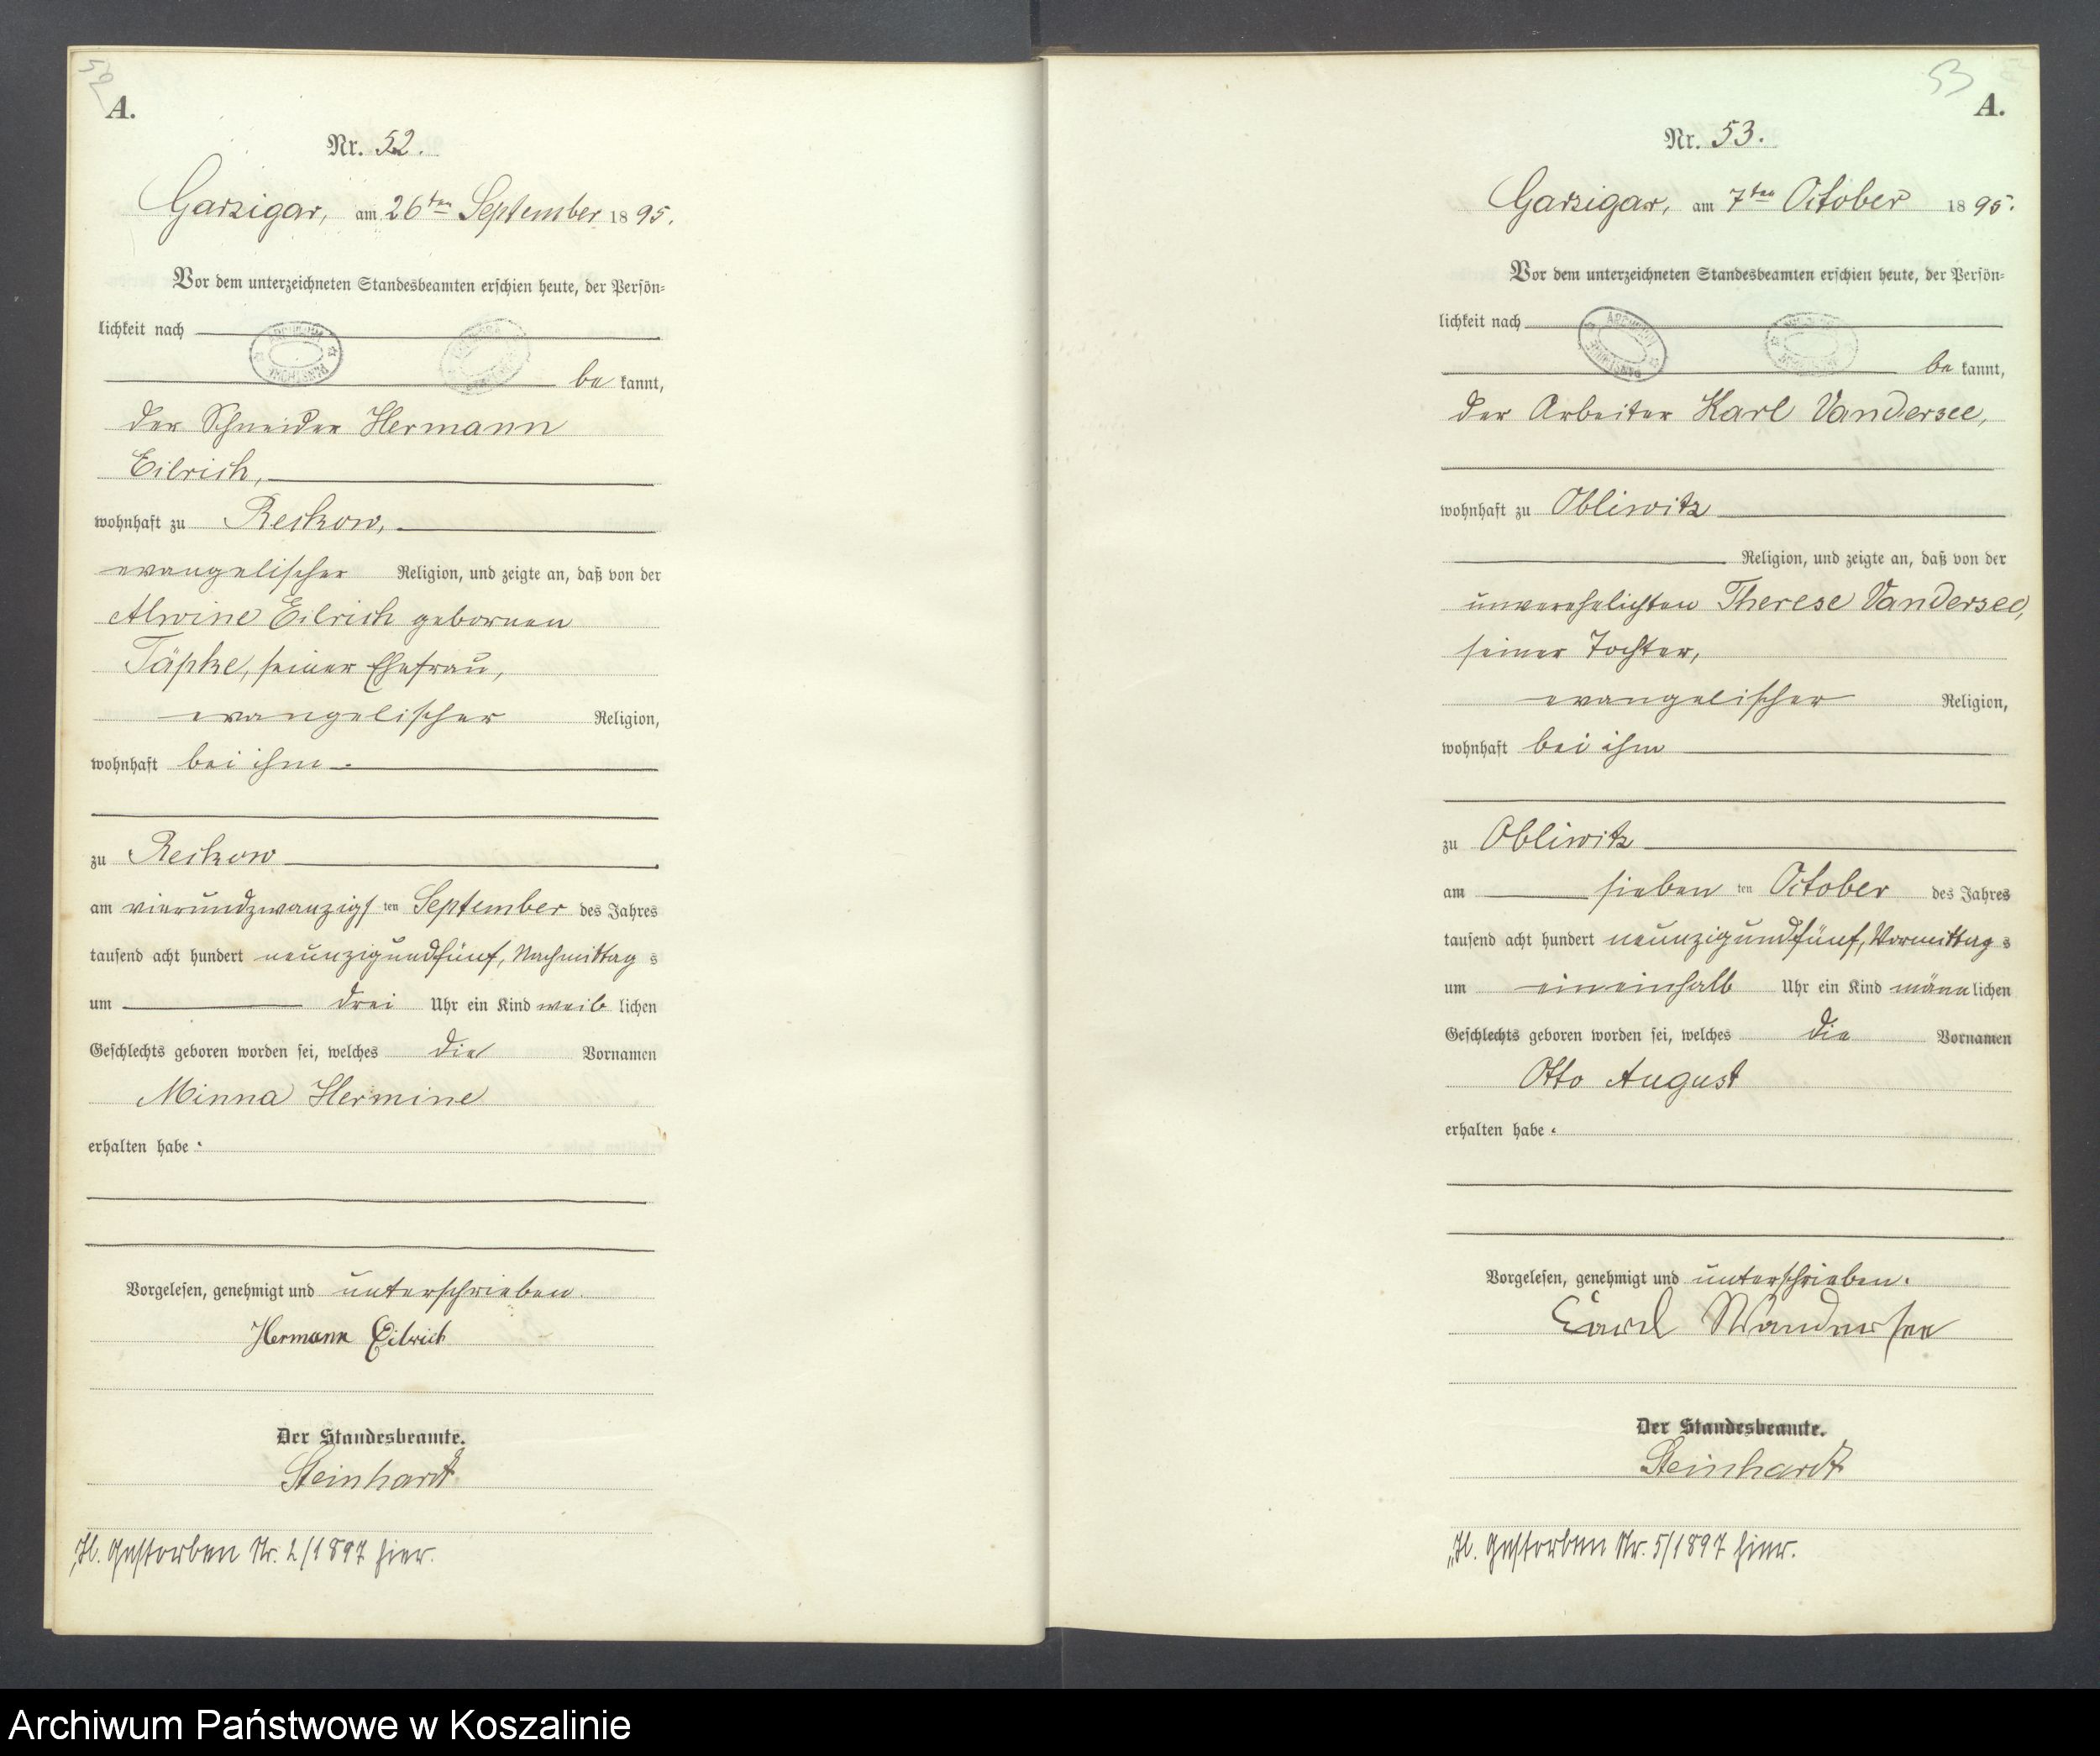 52
A.
Nr. 52.
Garzigar, am 26ten September 1895.
Vor dem unterzeichneten Standesbeamten erschien heute, der Persön-
lichkeit nach
be kannt,
der Schneider Hermann
Eilrich,
wohnhaft zu Reckow,
evangelischer Religion, und zeigte an, daß von der
Alwine Eilrich gebornen
Täpke, seiner Ehefrau,
evangelischer Religion,
wohnhaft bei ihm
zu Reckow
am vierundzwanzigsten September des Jahres
tausend acht hundert neunzigundfünf, Nachmittags
um drei Uhr ein Kind weiblichen
Geschlechts geboren worden sei, welches die Vornamen
Minna Hermine
erhalten habe.
Vorgelesen, genehmigt und unterschrieben.
Hermann Eilrich
Der Standesbeamte.
Steinhardt
H. Gestorben Nr. 2/1897 hier.
53
A.
Nr. 53.
Garzigar, am 7ten October 1895.
Vor dem unterzeichneten Standesbeamten erschien heute, der Persön-
lichkeit nach
be kannt,
der Arbeiter Karl Vandersee,
wohnhaft zu Obliwitz
Religion, und zeigte an, daß von der
unverehelichten Therese Vandersee,
seiner Tochter,
evangelischer Religion,
wohnhaft bei ihm
zu Obliwitz
am sieben ten October des Jahres
tausend acht hundert neunzigundfünf, Vormittags
um eineinhalb Uhr ein Kind männlichen
Geschlechts geboren worden sei, welches die Vornamen
Otto August
erhalten habe.
Vorgelesen, genehmigt und unterschrieben.
Carl Wandersee
Der Standesbeamte.
Steinhardt
H. Gestorben Nr. 5/1897 hier.
Archiwum Państwowe w Koszalinie